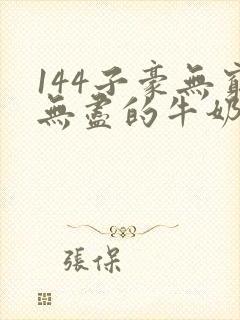 144子豪無窮
無盡的牛奶
張保